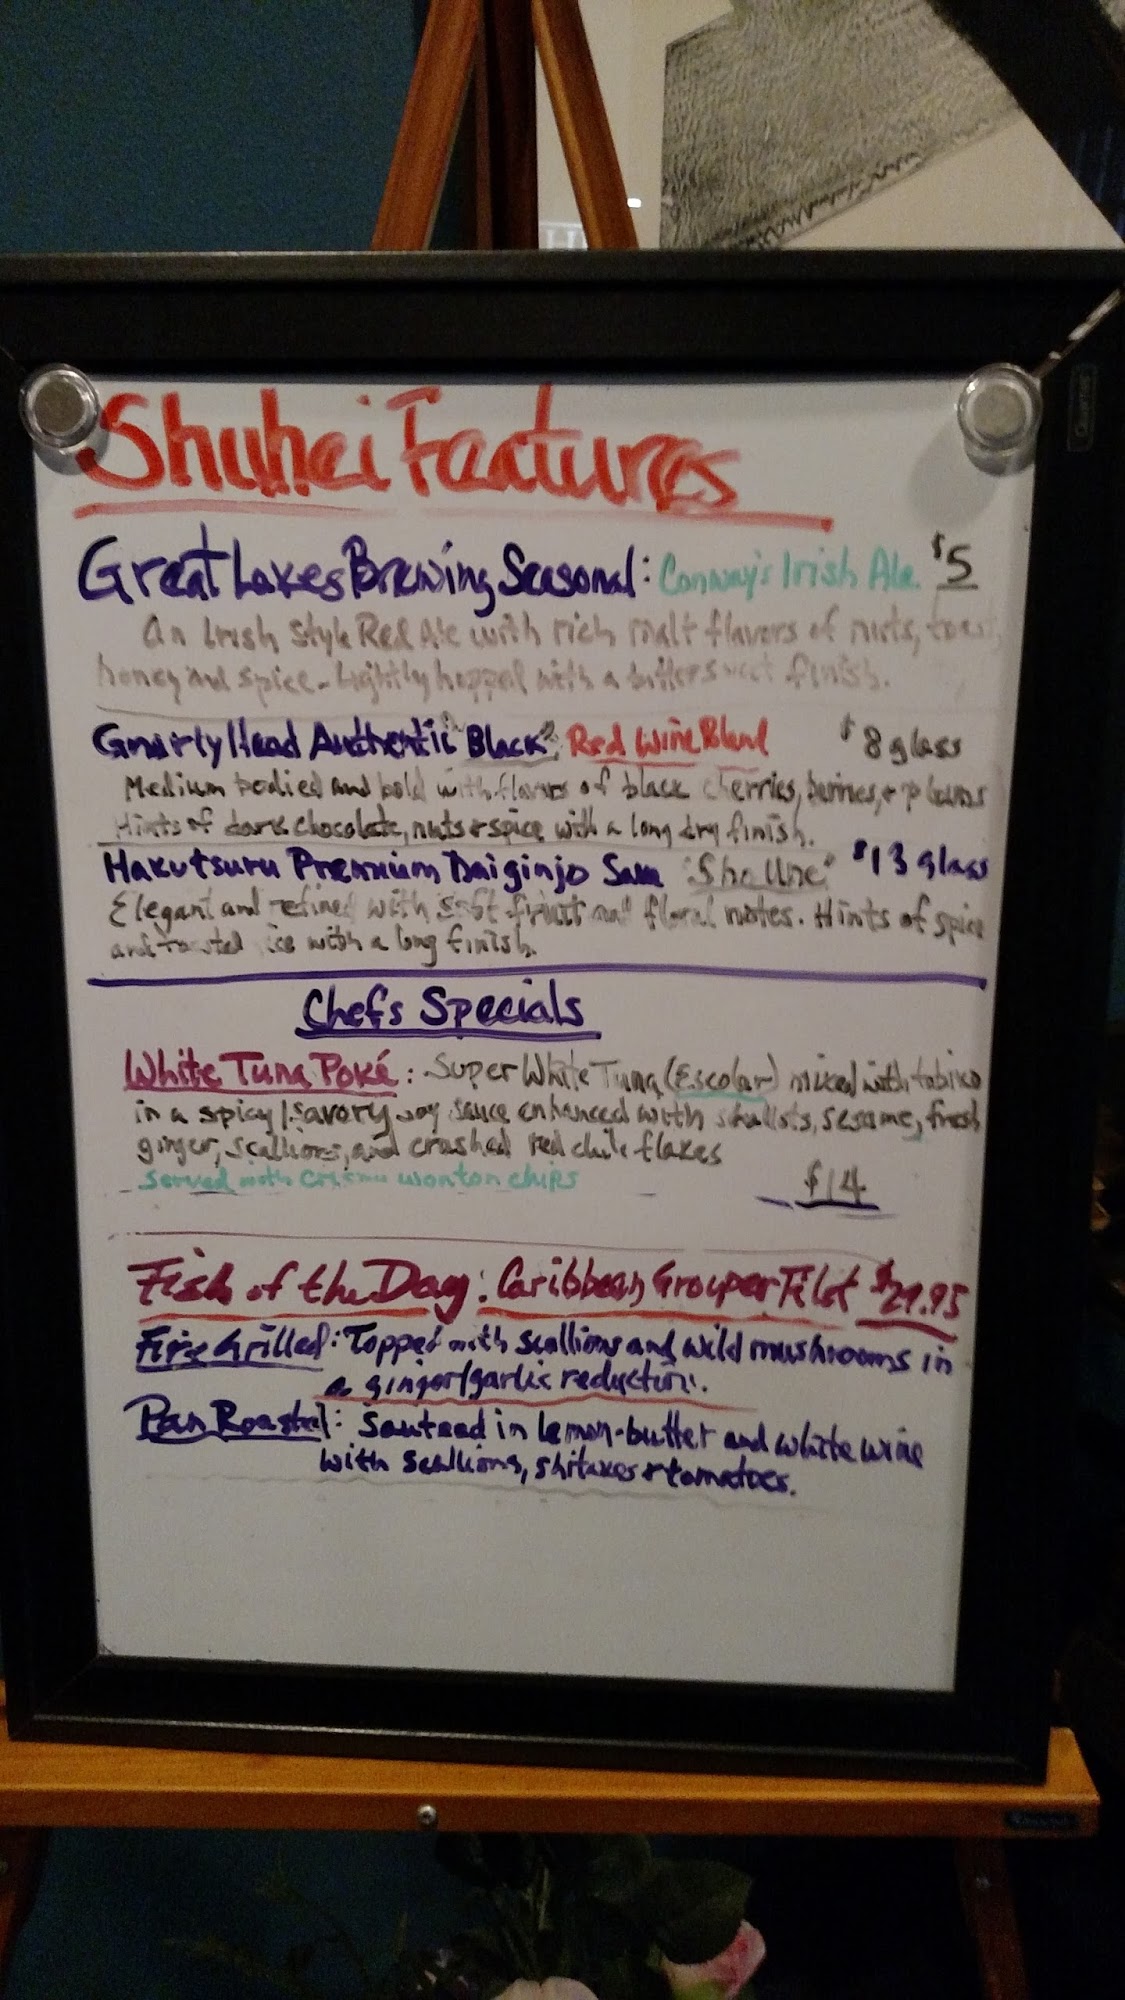 Shuhei Features
Great Lakes Brewing Seasonal: Conway's Irish Ale. $5
An Irish Style Red Ale with rich malt flavors of nuts, toast,
honey and spice. Lightly hopped with a bittersweet finish.
Gnarly Head Authentic "Black" Red Wine Blend $8 glass
Medium bodied and bold with flavors of black cherries, berries, + plums
Hints of dark chocolate, nuts + spice with a long dry finish.
Hakutsuru Premium Daiginjo Sake "Sho Une" $13 glass
Elegant and refined with soft fruit and floral notes. Hints of spice
and toasted ice with a long finish.
Chefs Specials
White Tuna Poké: Super White Tuna (Escolar) mixed with tobiko
in a spicy/savory soy sauce enhanced with shallots, sesame, fresh
ginger, scallions, and crushed red chile flakes
served with wonton chips
$14
Fish of the Day: Caribbean Grouper Filet $29.95
Fire Grilled: Topped with scallions and wild mushrooms in
a ginger/garlic reduction.
Pan Roasted: Sauteed in lemon-butter and white wine
with scallions, shitakes + tomatoes.